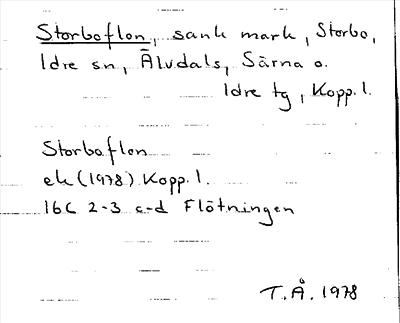 Storboflon, sank mark, Storbo,
Idre sn, Älvdals, Särna o.
Idre tg, Kopp. l.
Storboflon
ek (1978) Kopp. l.
16C 2-3 c-d Flötningen
T.Å. 1978